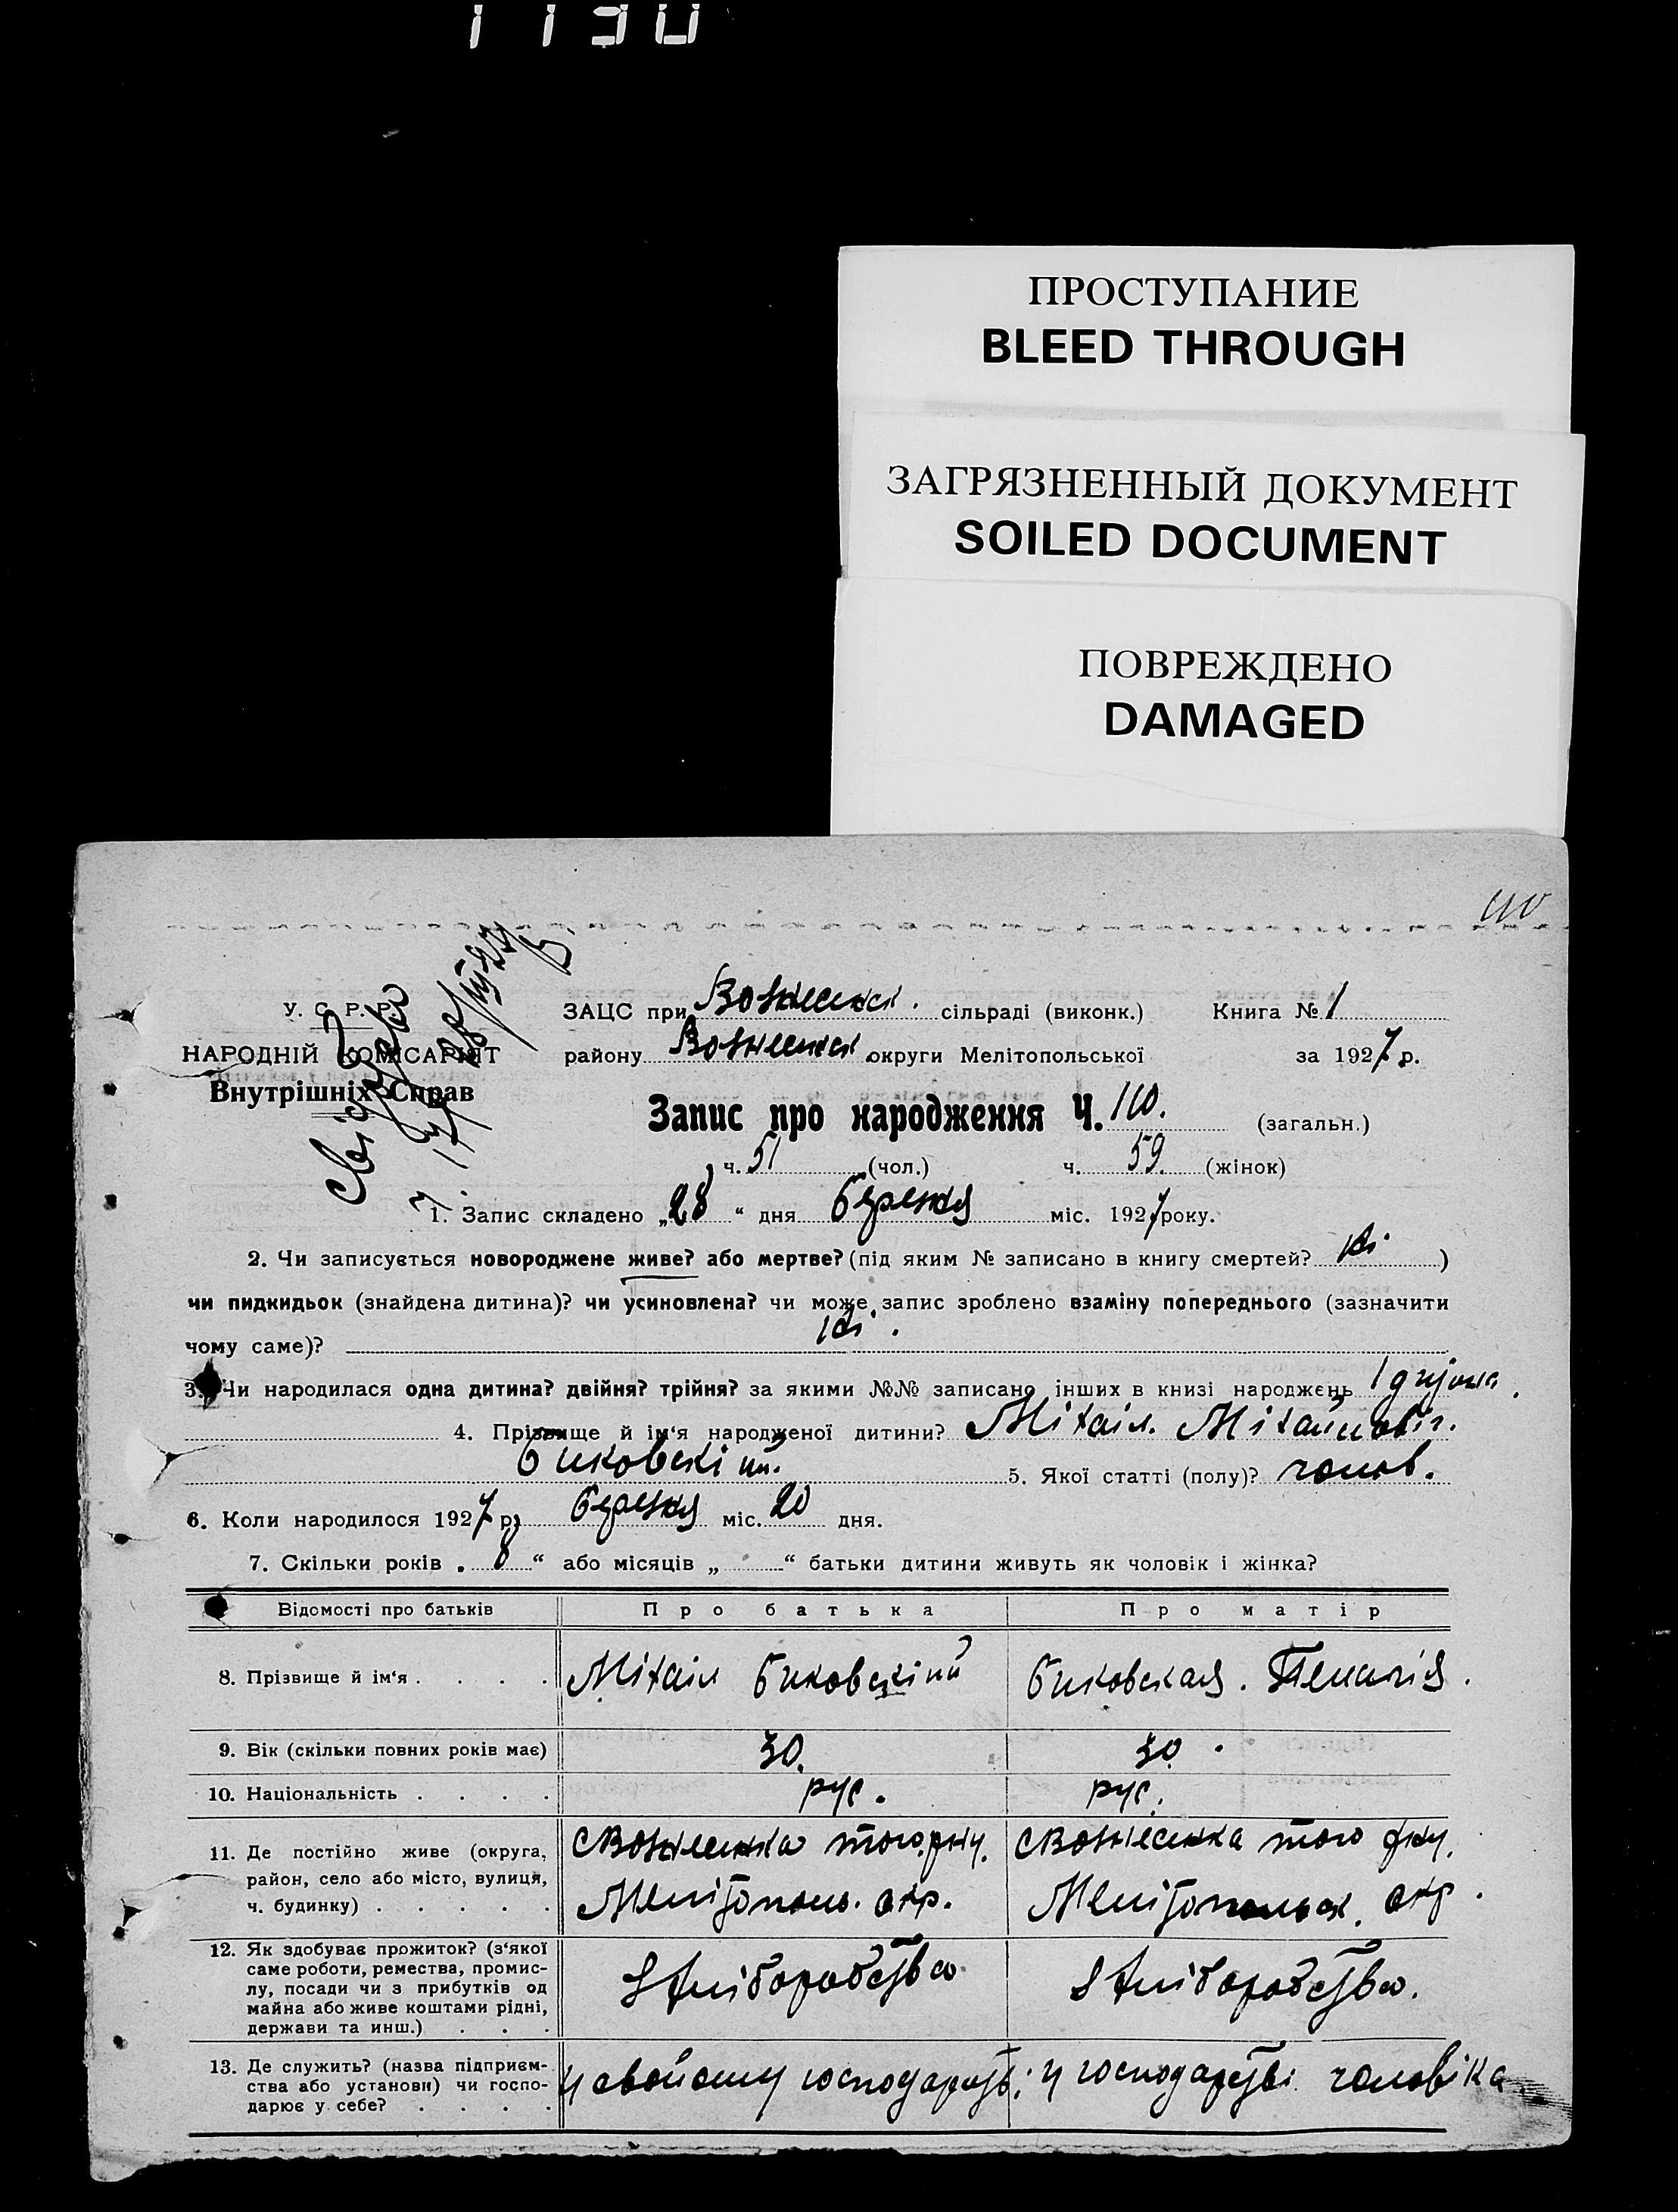 1130
ПРОСТУПАНИЕ
BLEED THROUGH
ЗАГРЯЗНЕННЫЙ ДОКУМЕНТ
SOILED DOCUMENT
ПОВРЕЖДЕНО
DAMAGED
110
У. С. Р. Р.
НАРОДНІЙ КОМІСАРІЯТ
Внутрішніх Справ
ЗАЦС при Вознесенск. сільраді (виконк.) Книга № 1
району Вознесенск округи Мелітопольської за 1927 р.
Запис про народження Ч. 110. (загальн.)
ч. 51 (чол.) ч. 59. (жінок)
1. Запис складено „28“ дня березня міс. 1927 року.
2. Чи записується новороджене живе? або мертве? (під яким № записано в книгу смертей? ні )
чи пидкидьок (знайдена дитина)? чи усиновлена? чи може запис зроблено взаміну попереднього (зазначити
чому саме)? ні.
3. Чи народилася одна дитина? двійня? трійня? за якими №№ записано інших в книзі народжень 1
4. Прізвище й ім‘я народженої дитини? Міхаіл. Міхайлович.
Биковскіий. 5. Якої статті (полу)? чолов.
6. Коли народилося 1927 р. березня міс. 20 дня.
7. Скільки років „8“ або місяців „ “ батьки дитини живуть як чоловік і жінка?
Відомості про батьків Про батька Про матір
8. Прізвище й ім‘я . . . . Міхаіл Биковскіий Биковская. Пелагія.
9. Вік (скільки повних років має) 30. 30.
10. Національність . . . . рус. рус.
11. Де постійно живе (округа, район, село або місто, вулиця, ч. будинку) . . . . . с Вознесенка того рну. Мелітополь. окр. с Вознесенка того рну. Мелітопольск. окр.
12. Як здобуває прожиток? (з‘якої саме роботи, ремества, промислу, посади чи з прибутків од майна або живе коштами рідні, держави та инш.) . . . з хліборобства з хліборобства.
13. Де служить? (назва підприємства або установи) чи господарює у себе? . . . . у свойому господарстві у господарстві чоловіка